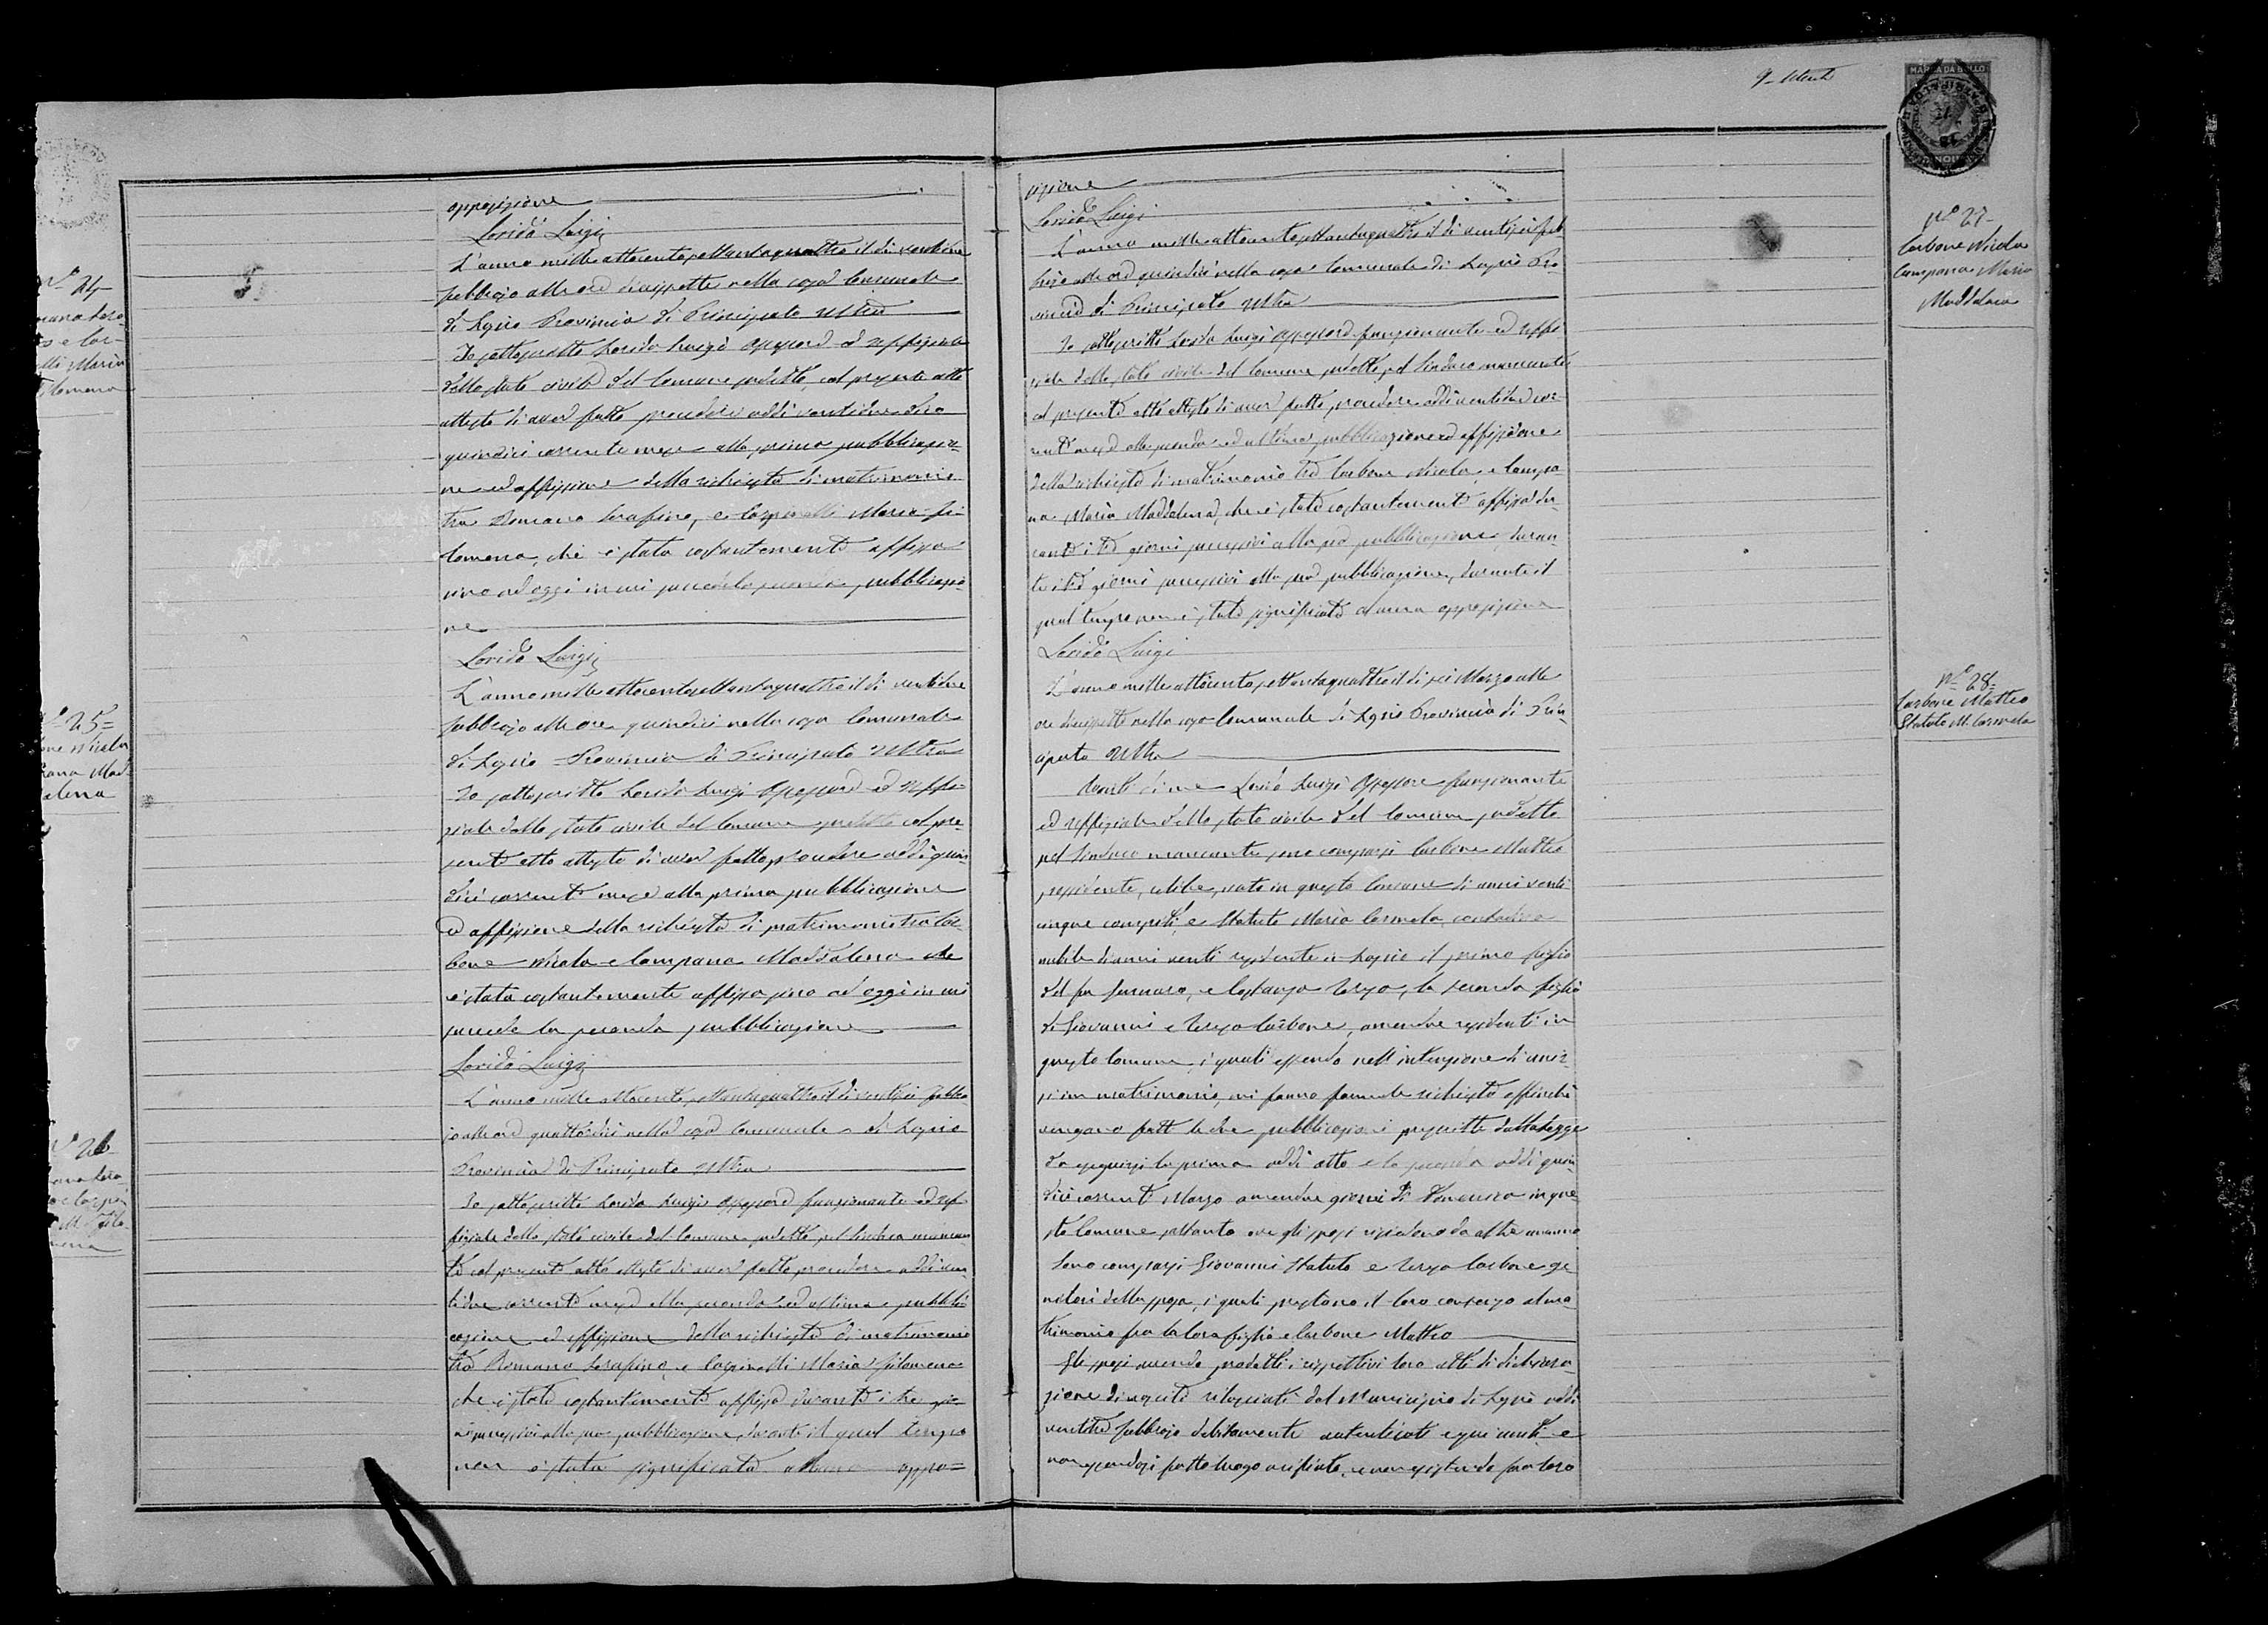 opposizione
Lorido Luigi
N. 24
L'anno mille ottocento settantaquattro il di ventidue
febbrajo alle ore diciassette nella casa Comunale
di Provincia di Principato Ultra
Io sottoscritto Lorido Luigi Assessore ed Uffiziale
dello stato civile del Comune sudetto, col presente atto
attesto di aver fatto procedere addi ventidue dico
quindici corrente mese alla prima pubblicazio-
ne ed affissione della richiesta di matrimonio
tra Romano Serafino, e Maria Fi-
lomena, che è stata costantemente affissa
sino ad oggi in cui succede la seconda pubblicazio
ne
Lorido Luigi
N. 25=
L'anno mille ottocento settantaquattro il di ventidue
febbrajo alle ore quindici nella casa Comunale
di Provincia di Principato Ultra
Io sottoscritto Lorido Luigi Assessore ed Uffi-
ziale dello stato civile del Comune sudetto col pre-
sente atto attesto di aver fatto procedere addi quin-
dici corrente mese alla prima pubblicazione
ed affissione della richiesta di matrimonio tra Car-
bone Nicola e Campana Maddalena che
è stata costantemente affissa sino ad oggi in cui
succede la seconda pubblicazione
Lorido Luigi
N. 26
L'anno mille ottocento settantaquattro il di ventisei febbra
jo alle ore quattordici nella casa Comunale di
Provincia di Principato Ultra
Io sottoscritto Lorido Luigi Assessore funzionante ed Uf-
fiziale dello stato civile del Comune sudetto, pel Sindaco mancan
te col presente atto attesto di aver fatto procedere addi ven-
tidue corrente mese alla seconda ed ultima pubbli-
cazione ed affissione della richiesta di matrimonio
tra Romano Serafino, e Maria Filomena
che è stata costantemente affissa durante i tre gior-
ni successivi alla sua pubblicazione, durante il qual tempo
non è stata significata alcuna oppo=
sizione
Lorido Luigi
N° 27
Carbone Nicola
Campana Maria
Maddalena
L'anno mille ottocento settantaquattro il di ventisei feb
brajo alle ore quindici nella casa Comunale di Pro-
vincia di Principato Ultra
Io sottoscritto Lorido Luigi Assessore funzionante ed Uffi
ziale dello stato civile del Comune sudetto, pel Sindaco mancante
col presente atto attesto di aver fatto procedere addi ventidue cor-
rente mese alla seconda ed ultima pubblicazione ed affissione
della richiesta di matrimonio tra Carbone Nicola, e Campa-
na Maria Maddalena, che è stata costantemente affissa du-
rante i tre giorni successivi alla sua pubblicazione, duran-
te i tre giorni successivi alla sua pubblicazione, durante il
qual tempo non è stata significata alcuna opposizione
Lorido Luigi
N° 28=
Carbone Matteo
Statuto M. Carmela
L'anno mille ottocento settantaquattro il di sei Marzo alle
ore diciassette nella casa Comunale di Provincia di Prin-
cipato Ultra
Avanti di me Lorido Luigi Assessore funzionante
ed Uffiziale dello stato civile del Comune sudetto
pel Sindaco mancante, sono comparsi Carbone Matteo
residente, celibe, nato in questo Comune di anni venti
cinque compiti, e Statuto Maria Carmela, contadina
nubile di anni venti residente in il primo figlio
del fu Gennaro, e Costanza, la seconda figlia
di Giovanni e Teresa Carbone, amendue residenti in
questo Comune, i quali essendo nell'intenzione di unir-
si in matrimonio, mi fanno formale richiesta affinchè
vengano fatte le due pubblicazioni prescritte dalla legge
da eseguirsi la prima addi otto e la seconda addi quin-
dici corrente Marzo amendue giorni di Domenica in que-
sto Comune soltanto ove gli sposi risiedono da oltre un anno
Sono comparsi Giovanni Statuto e Teresa Carbone ge
nitori della sposa, i quali prestano il loro consenso al ma-
trimonio fra la loro figlia e Carbone Matteo
Gli sposi avendo prodotti i rispettivi loro atti di dichiara
zione di nascita rilasciati dal Municipio di addi
ventitre febbrajo debitamente autenticati e qui uniti, e
non essendosi fatto luogo a rifiuto, e non esistendo fra loro